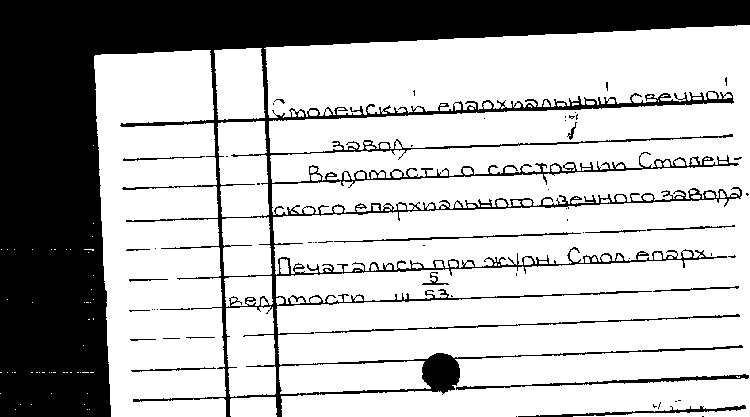 Смоленский епархиальный свечной
завод.
Ведомости о состоянии Смолен-
ского епархиального свечного завода.
Печатались при журн. Смол. епарх.
ведомости. ш 5/53.